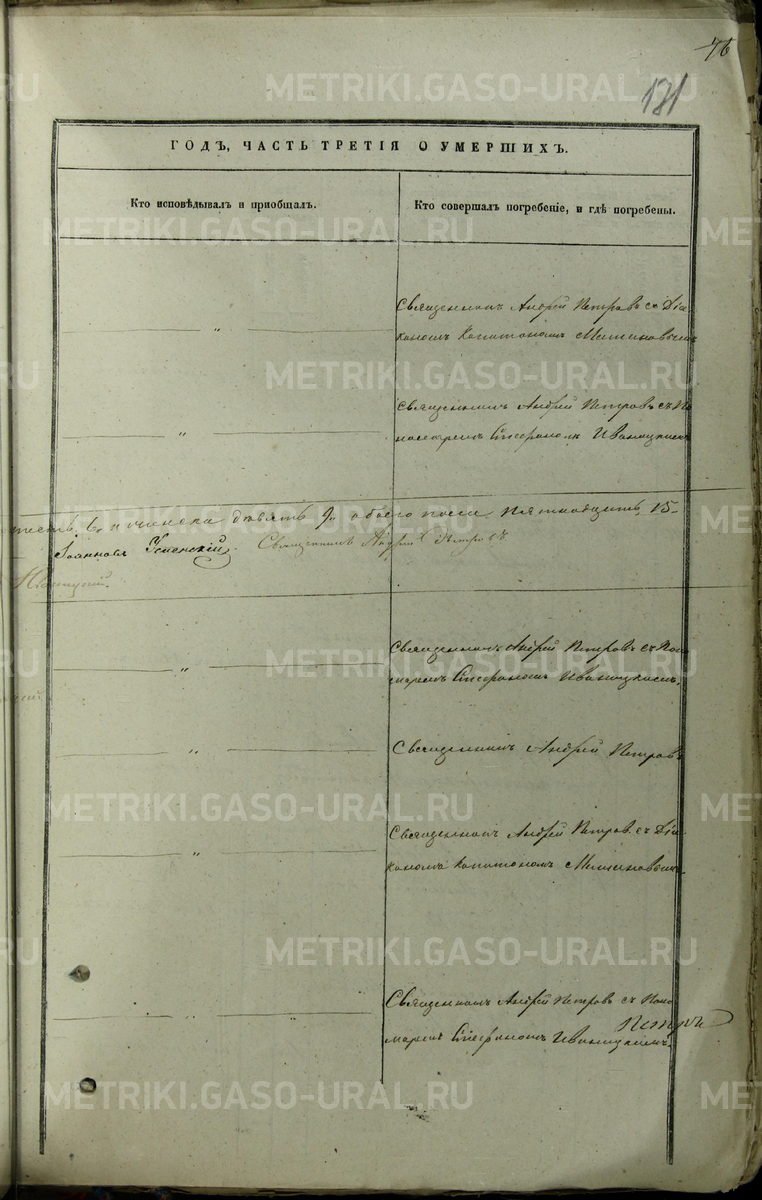 76
131
ГОДЪ, ЧАСТЬ ТРЕТІЯ О УМЕРШИХЪ.
Кто исповѣдывалъ и пріобщалъ.
Кто совершалъ погребеніе, и гдѣ погребены.
Священникъ Андрей Петровъ съ Діа
кономъ Капитономъ
Священникъ Андрей Петровъ съ По
номаремъ Стефаномъ Иваницкимъ
шесть 6. и женска девять 9. обоего пола пятнадцать 15.
Іоанновъ Успенскій. Священникъ Андрей Петровъ
Иваницкій.
Священникъ Андрей Петровъ съ Поно
маремъ Стефаномъ Иваницкимъ.
Священникъ Андрей Петровъ
Священникъ Андрей Петровъ съ Діа
кономъ Капитономъ
Священникъ Андрей Петровъ съ Поно
маремъ Стефаномъ Иваницкимъ.
Петровъ
METRIKI.GASO-URAL.RU